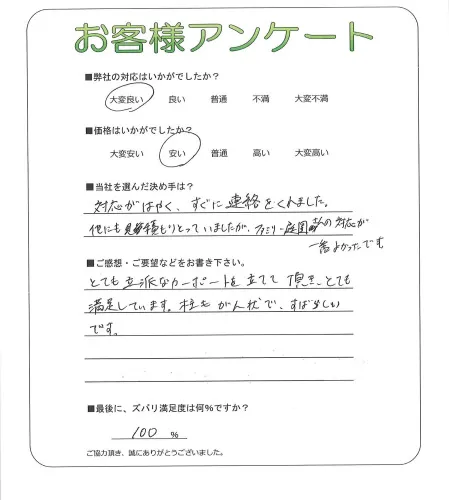 お客様アンケート
■弊社の対応はいかがでしたか？
大変良い 良い 普通 不満 大変不満
■価格はいかがでしたか？
大変安い 安い 普通 高い 大変高い
■当社を選んだ決め手は？
対応がはやく、すぐに連絡をくれました。
他にも見積もりとっていましたが、ファミリー庭園さんの対応が
一番よかったです
■ご感想・ご要望などをお書き下さい。
とても立派なカーポートを立てて頂き、とても
満足しています。柱もがん状で、すばらしい
です。
■最後に、ズバリ満足度は何％ですか？
100 %
ご協力頂き、誠にありがとうございました。